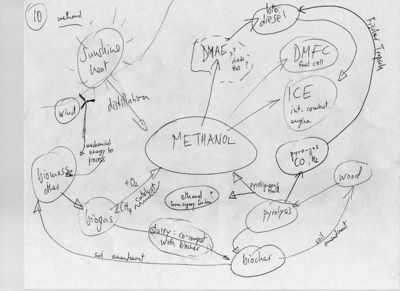 10
methanol
Sunshine
heat
bio
diesel
Fischer Tropsch
DMAE
?
check
this ?
DMFC
fuel cell
ICE
int. combust.
engine
wind
distillation
METHANOL
mechanical
energy to
process
pyro-gas
CO, H₂
wood
biomass
other
+O₂
catalyst
2CH₄
biogas
pyroligneous
fluid
ethanol ?
pyrolysis
slurry: co-compost
with biochar
soil amendment
biochar
soil
amendment